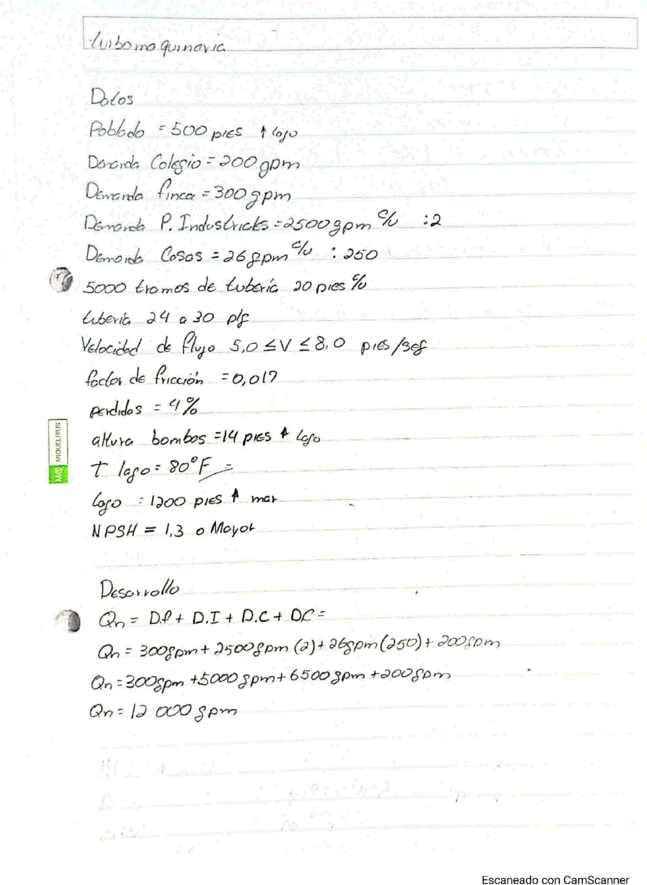 turbomaquinaria
Datos
Poblado = 500 pies ↑ lago
Demanda Colegio = 200 gpm
Demanda finca = 300 gpm
Demanda P. Industriales = 2500 gpm c/u : 2
Demanda Casas = 26 gpm c/u : 250
5000 tramos de tubería 20 pies c/u
tubería 24 a 30 plg
Velocidad de flujo 5,0 ≤ V ≤ 8,0 pies/seg
factor de fricción = 0,017
perdidas = 4%
altura bombas = 14 pies ↑ lago
T lago = 80°F =
lago : 1200 pies ↑ mar
NPSH = 1.3 o Mayor
Desarrollo
Qn = D.f + D.I + D.C + DC =
Qn = 300gpm + 2500gpm (2) + 26gpm (250) + 200gpm
Qn = 300gpm + 5000 gpm + 6500 gpm + 200gpm
Qn = 12 000 gpm
MQ MIQUELRIUS
Escaneado con CamScanner